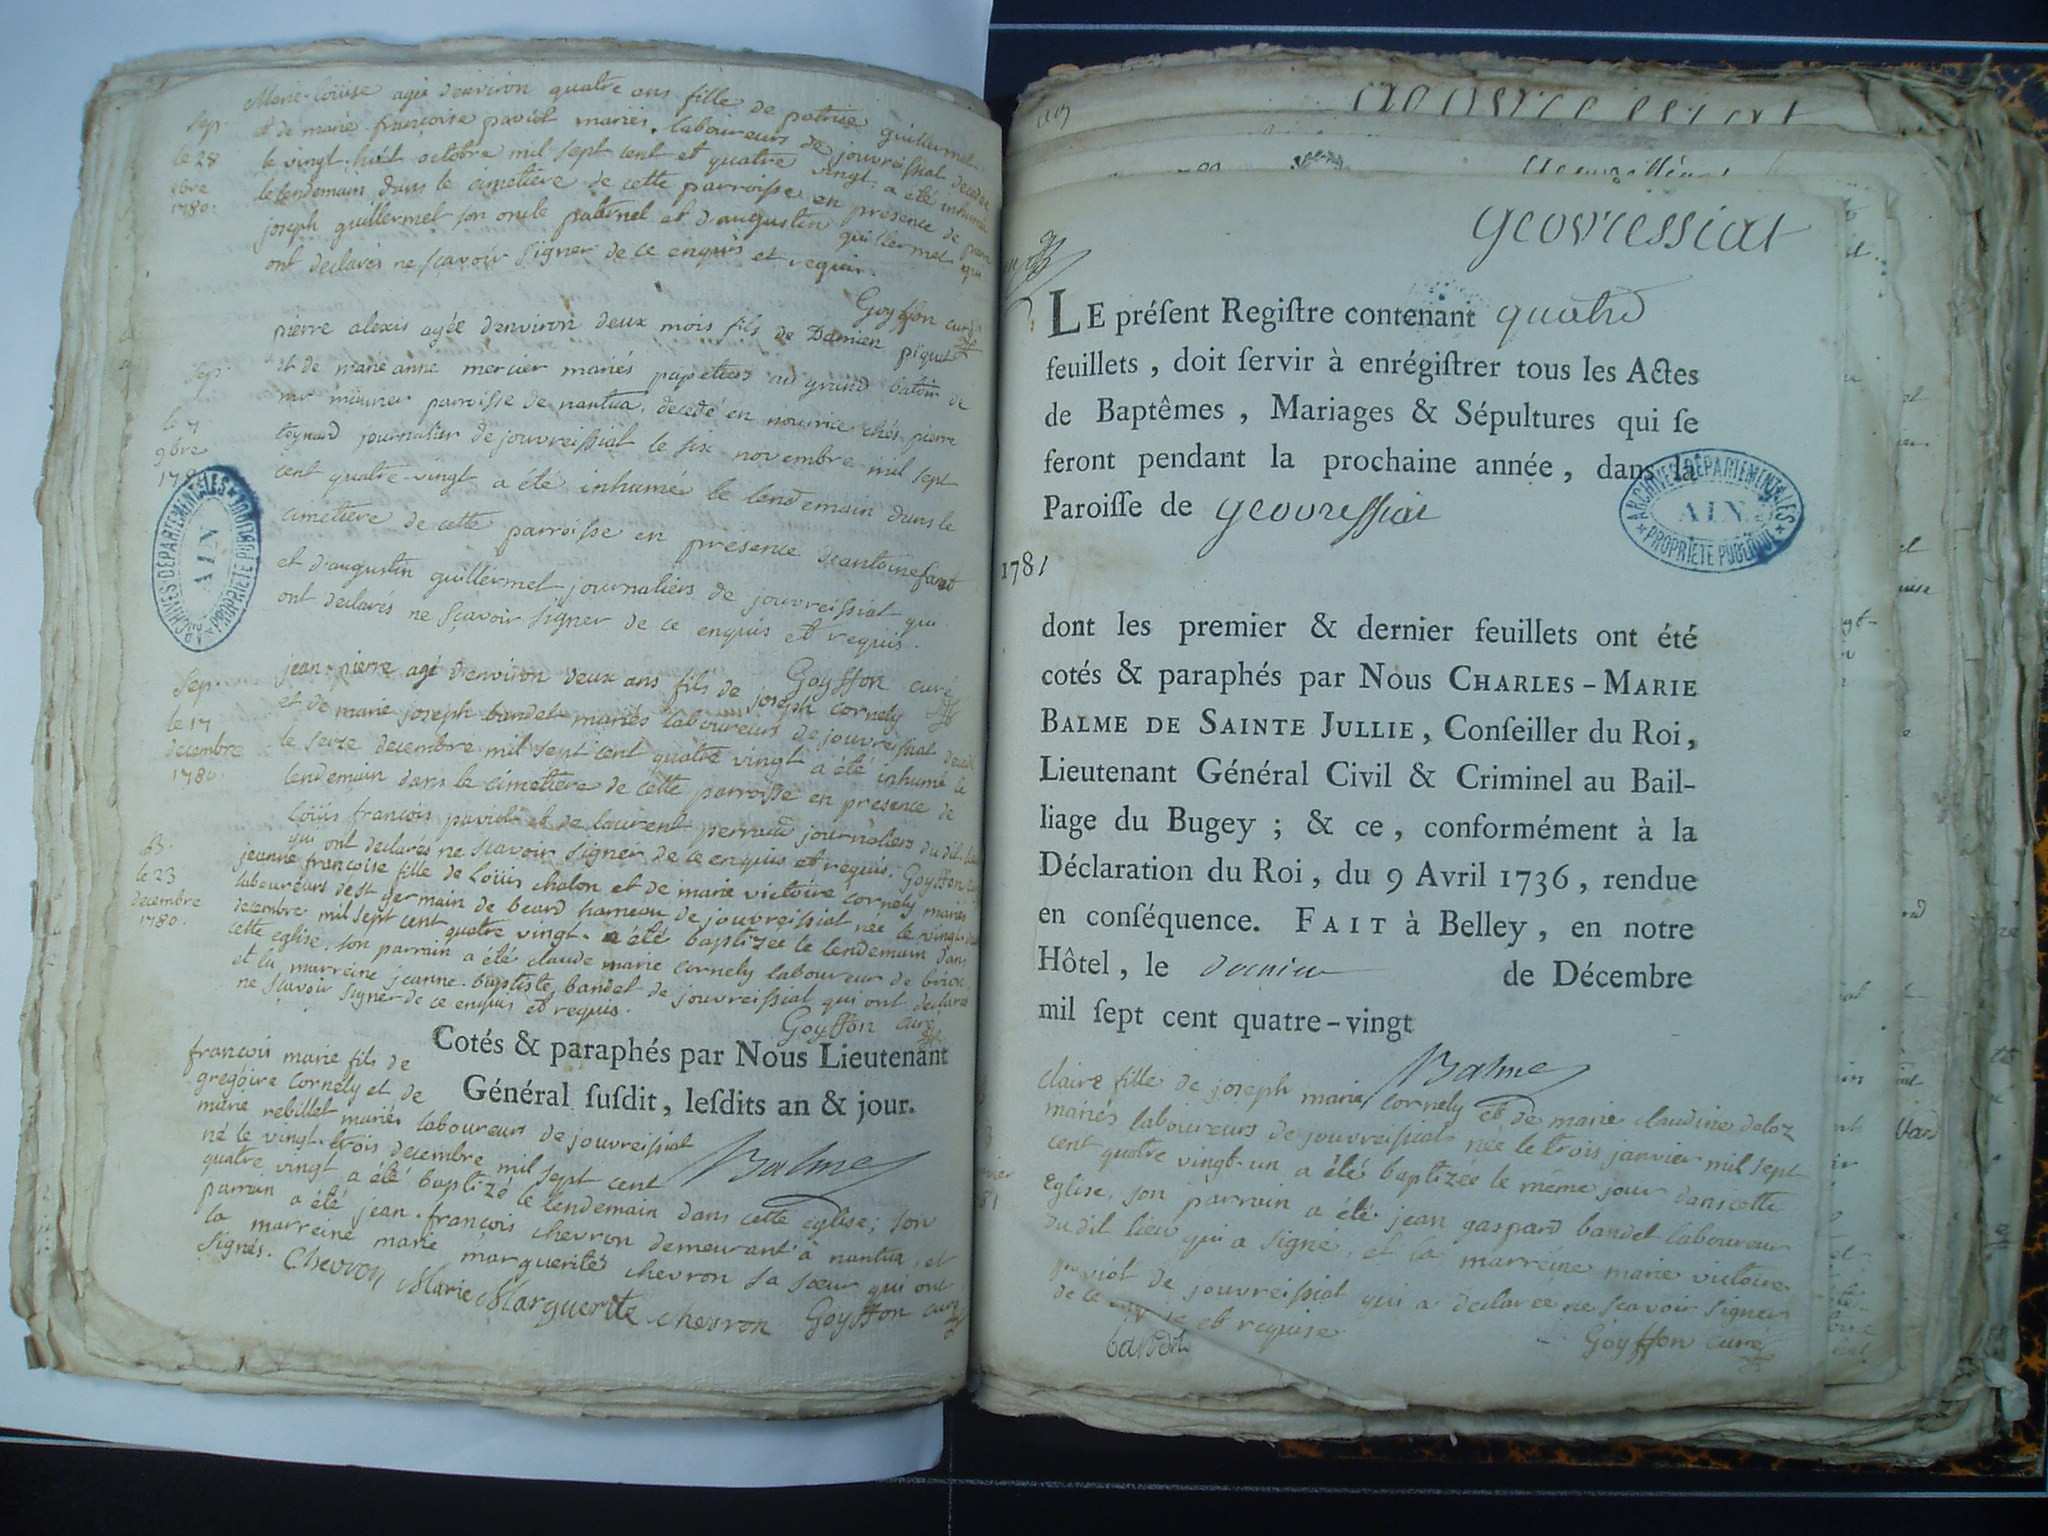 Sep.
le 28
8bre
1780.
Marie-Loüise agée d'environ quatre ans fille de patrice guillermet
et de marie françoise paviot mariés laboureurs de jouvreissiat decedée
le vingt-huit octobre mil sept cent et quatre vingt a été inhumée
le lendemain dans le cimetiere de cette parroisse en presence de
joseph guillermet son oncle paternel et d'augustin guillermet qui
ont declarés ne scavoir signer de ce enquis et requis.
Goyffon curé
Sep.
le 7
9bre
pierre alexis agée d'environ deux mois fils de Damien piquet
et de marie anne mercier mariés papetiers au grand batoir de
parroisse de nantua, decedé en nourrice chés pierre
journalier de jouvreissiat le six novembre mil sept
cent quatre-vingt a été inhumé le lendemain dans le
cimetiere de cette parroisse en presence d'antoine
et d'augustin guillermet journaliers de jouvreissiat qui
ont declarés ne scavoir signer de ce enquis et requis.
Goyffon curé
ARCHIVES DÉPARTEMENTALES
AIN
PROPRIÉTÉ PUBLIQUE
Sep.
le 17
decembre
1780.
jean-pierre agé d'environ deux ans fils de joseph cornely
et de marie joseph bandet mariés laboureurs de jouvreissiat decedé
le seize decembre mil sept cent quatre vingt a été inhumé le
lendemain dans le cimetiere de cette parroisse en presence de
Loüis françois paviot et de laurent perraud journaliers du dit lieu
qui ont declarés ne scavoir signer de ce enquis et requis. Goyffon
B.
le 23
decembre
1780.
jeanne françoise fille de Loüis chalon et de marie victoire cornely mariés
laboureurs de st germain de beard hameau de jouvreissiat née le vingt-deux
decembre mil sept cent quatre vingt a été baptizée le lendemain dans
cette eglise, son parrain a été claude marie cornely laboureur de brion
et la marreine jeanne baptiste bandet de jouvreissiat qui ont declarés
ne scavoir signer de ce enquis et requis.
Goyffon curé
Cotés & paraphés par Nous Lieutenant
Général susdit, lesdits an & jour.
Balme
françois marie fils de
gregoire cornely et de
marie rebillet mariés laboureurs de jouvreissiat
né le vingt-trois decembre mil sept cent
quatre vingt a été baptizé le lendemain dans cette eglise; son
parrain a été jean-françois chevron demeurant à nantua, et
la marreine marie marguerite chevron sa soeur qui ont
signés. Chevron Marie Marguerite chevron Goyffon curé
geovressiat
LE préſent Regiſtre contenant quatre
feuillets, doit ſervir à enrégiſtrer tous les Actes
de Baptêmes, Mariages & Sépultures qui ſe
feront pendant la prochaine année, dans la
Paroiſſe de geovressiat
ARCHIVES DÉPARTEMENTALES
AIN
PROPRIÉTÉ PUBLIQUE
1781
dont les premier & dernier feuillets ont été
cotés & paraphés par Nous CHARLES-MARIE
BALME DE SAINTE JULLIE, Conſeiller du Roi,
Lieutenant Général Civil & Criminel au Bail-
liage du Bugey; & ce, conformément à la
Déclaration du Roi, du 9 Avril 1736, rendue
en conſéquence. FAIT à Belley, en notre
Hôtel, le dernier de Décembre
mil ſept cent quatre-vingt
Balme
claire fille de joseph marie cornely et de marie claudine deloz
mariés laboureurs de jouvreissiat née le trois janvier mil sept
cent quatre vingt-un a été baptizée le même jour dans cette
Eglise, son parrain a été jean gaspard bandet laboureur
du dit lieu qui a signé, et la marreine marie victoire
paviot de jouvreissiat qui a declarée ne scavoir signer
de ce enquise et requise
bandet
Goyffon curé